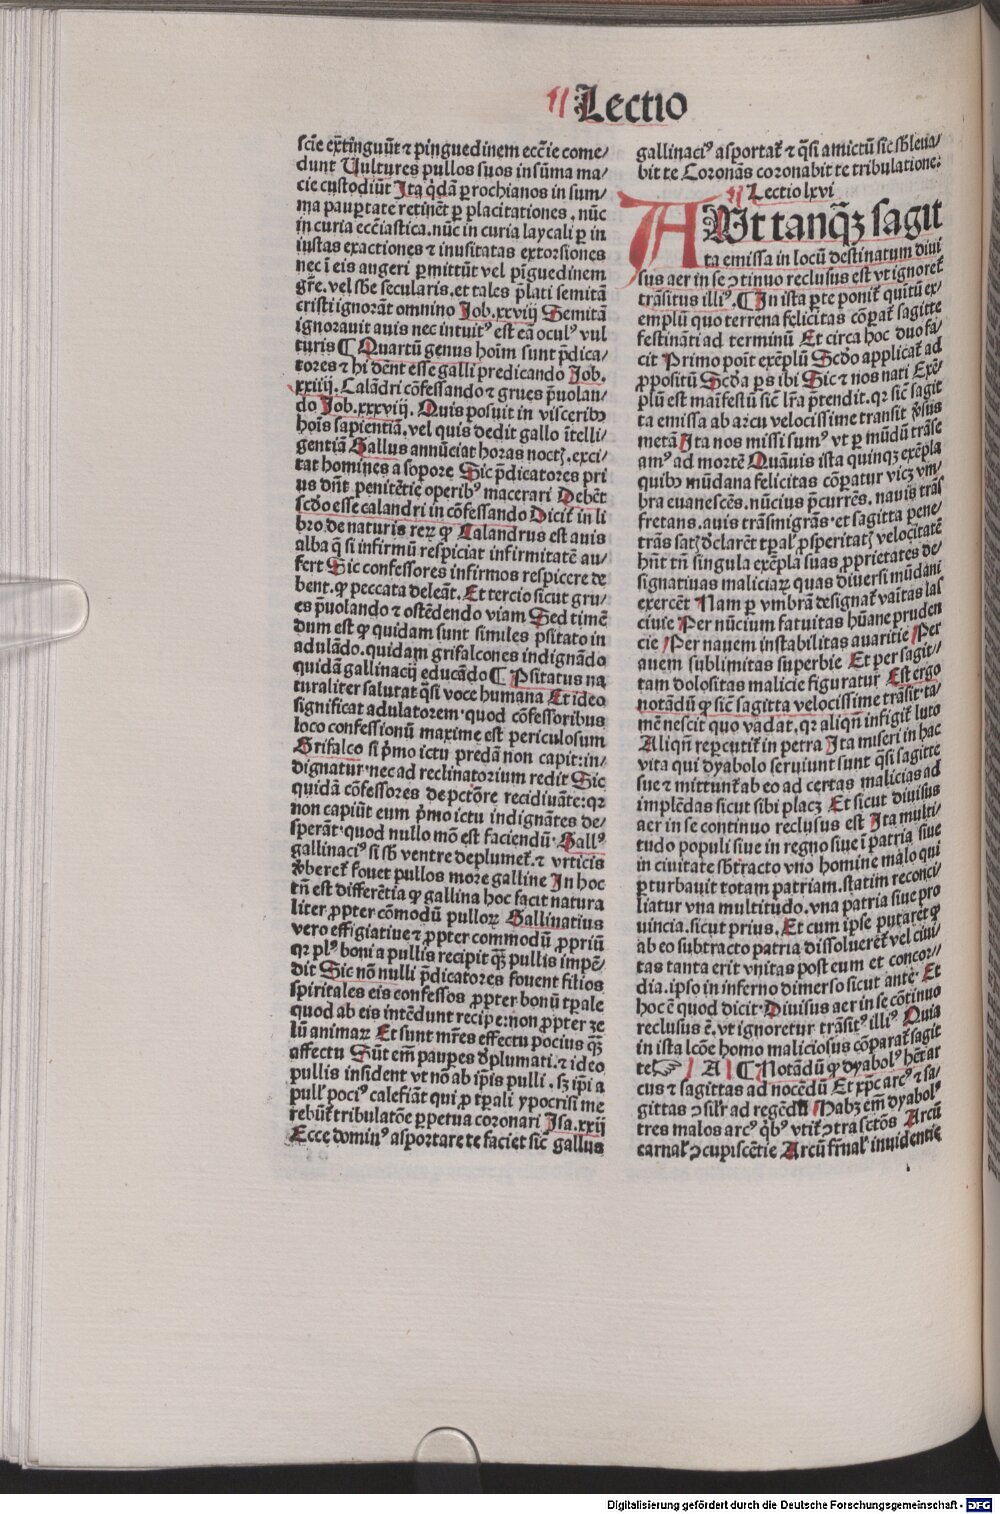 Lectio
scīe extinguūt ⁊ pinguedinem eccīe come/
dunt Uultures pullos suos in sūma ma/
cie custodiūt Ita qdā prochianos in sum/
ma paupertate retinēt p placitationes. nūc
in curia eccīiastica. nūc in curia laycali p in
iustas exactiones ⁊ inusitatas extorsiones
nec ī eis augeri pmittūt vel pīguedinem
grē. vel sbē secularis. et tales plati semitā
cristi ignorāt omnino Job. xxviij Semitā
ignorauit auis nec intuitꝰ est eā oculꝰ vul
turis ¶ Quartū genus hoīm sunt pdica/
tores ⁊ hi dēnt esse galli predicando Job.
xxiiij. Calādri cōfessando ⁊ grues puolan/
do Job. xxxviij. Quis posuit in visceribꝫ
hoīs sapientiā. vel quis dedit gallo ītelli/
gentiā Gallus annūciat horas noctꝭ. exci/
tat homines a sopore Sic pdicatores pri
us dnt penitētie operibꝰ macerari Debēt
scdo esse calandri in cōfessando Dicit in li
bro de naturis reꝝ ꝙ Calandrus est auis
alba q̄ si infirmū respiciat infirmitatē au/
fert Sic confessores infirmos respicere de
bent. ꝙ peccata deleāt. Et tercio sicut gru/
es puolando ⁊ ostēdendo viam Sed timē
dum est ꝙ quidam sunt similes psitato in
adulādo. quidam grifalcones indignādo
quidā gallinacij educādo ¶ Psitatus na
turaliter salutat qsi voce humana Et ideo
significat adulatorem. quod cōfessoribus
loco confessionū maxime est periculosum
Grifalco si pmo ictu predā non capit: in/
dignatur. nec ad reclinatorium redit Sic
quidā cōfessores de pctōre recidiuāte: qꝛ
non capiūt eum pmo ictu indignātes de/
sperāt. quod nullo mō est faciendū. Gallꝰ
gallinaciꝰ si sb ventre deplumet. ⁊ vrticis
vberet fouet pullos more galline In hoc
tn est differētia ꝙ gallina hoc facit natura
liter ppter cōmodū pulloꝝ Gallinatius
vero effigiatiue ⁊ ppter commodū ppriū
qꝛ plꝰ boni a pullis recipit qꝫ pullis impē/
dit Sic nō nulli pdicatores fouent filios
spiritales eis confessos ppter bonū tpale
quod ab eis intēdunt recipe: non ppter ze
lū animaꝝ Et sunt mres effectu pocius qꝫ
affectu Sūt em paupes deplumati. ⁊ ideo
pullis insident vt nō ab ipis pulli. sꝫ ipi a
pull pociꝰ calefiāt qui p tpali ypocrisi me
rebūt tribulatōe ppetua coronari Jsa. xxij
Ecce dominꝰ asportare te faciet sic gallus
gallinaciꝰ asportat ⁊ qsi amictū sic sbleua/
bit te Coronās coronabit te tribulatione:
Lectio lxvi
AWt tanqꝫ sagit
ta emissa in locū destinatum diui
sus aer in se ↄtinuo reclusus est vt ignoret
trāsitus illiꝰ. ¶ In ista pte ponit quitū ex/
emplū quo terrena felicitas cōpat sagitte
festināti ad terminū Et circa hoc duo fa/
cit Primo poīt exēplū Scdo applicat ad
ppositū Scda ps ibi Sic ⁊ nos nati Exē/
plū est maīfestū sic lra ptendit. qꝛ sic sagit
ta emissa ab arcu velocissime transit vsus
metā Ita nos missi sumꝰ vt p mūdū trāse
amꝰ ad mortē Quāuis ista quinqꝫ exēpla
quibꝫ mūdana felicitas cōpatur vicꝫ vm/
bra euanescēs. nūcius pcurrēs. nauis trās
fretans. auis trāsmigrās. et sagitta pene/
trās satꝭ declarēt tpal psperitatꝭ velocitatē
hnt tn singula exēpla suas pprietates de/
signatiuas maliciaꝝ quas diuersi mūdani
exercēt Nam p vmbrā designat vaītas las
ciuie Per nūcium fatuitas hūane pruden
cie Per nauem instabilitas auaritie Per
auem sublimitas superbie Et per sagit/
tam dolositas malicie figuratur Est ergo
notādū ꝙ sic sagitta velocissime trāsit. ta/
mē nescit quo vadat. qꝛ aliqn infigit luto
Aliqn repcutit in petra Ita miseri in hac
vita qui dyabolo seruiunt sunt qsi sagitte
sue ⁊ mittunt ab eo ad certas malicias ad
implēdas sicut sibi placꝫ Et sicut diuisus
aer in se continuo reclusus est Ita multi/
tudo populi siue in regno siue ī patria siue
in ciuitate sbtracto vno homine malo qui
pturbauit totam patriam. statim reconci/
liatur vna multitudo. vna patria siue pro
uincia. sicut prius. Et cum ipse putaret ꝙ
ab eo subtracto patria dissolueret vel ciui/
tas tanta erit vnitas post eum et concor/
dia. ipso in inferno dimerso sicut ante. Et
hoc ē quod dicit. Diuisus aer in se cōtinuo
reclusus ē. vt ignoretur trāsitꝰ illiꝰ Quia
in ista lcōe homo maliciosus cōparat sagit
te☞ A ¶ Notādū ꝙ dyabolꝰ het ar
cus ⁊ sagittas ad nocēdū Et xpc arcꝰ ⁊ sa/
gittas ↄsilr ad regēdū Habꝫ em dyabolꝰ
tres malos arcꝰ qbꝰ vtit ↄtra sctōs Arcū
carnal ↄcupiscētie Arcū frnal inuidentie
Digitalisierung gefördert durch die Deutsche Forschungsgemeinschaft - DFG